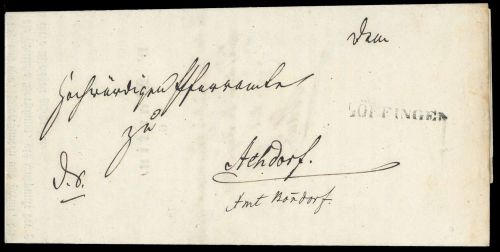 Dem
Hochwürdigen Pfarramte
LÖFFINGEN
zu
Achdorf.
d. S.
Amt Bondorf.